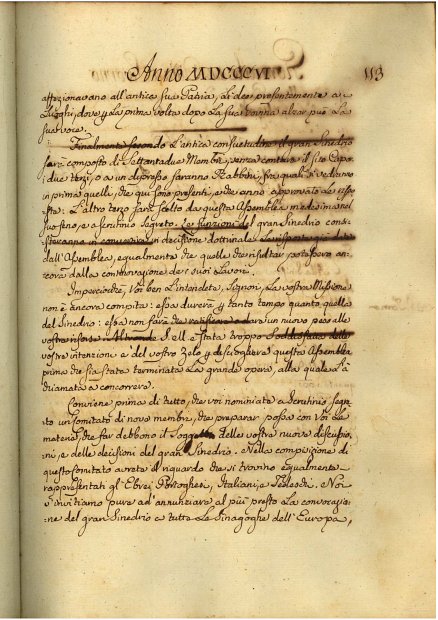 Anno MDCCCVI 113
affezionavano all'antica sua Patria, si dee presentemente a'
Luoghi, dove p la prima volta dopo la sua rovina alzar può la
sua voce.
Finalmente secondo L'antica consuetudine il gran Sinedrio
sarà composto di Settantadue Membri, senza contare il suo Capo:
due terzi, o a un dipresso saranno Rabbini, fra quali si vedranno
in prima quelli, che qui sono presenti, e che anno approvato le rispo-
ste: L'altro terzo sarà scelto da questa Assemblea medesima nel
suo seno, e a scrutinio segreto. Le funzioni del gran Sinedrio consi-
steranno in convertire in decisione dottrinale Le risposte già date
dall'Assemblea, egualmente che quelle che risultar potessero an-
cora dalla continuazione de' suoi Lavori.
Imperciochè, Voi ben L'intendete, Signori, La vostra Missione
non è ancora compita: essa durerà p tanto tempo quanto quella
del Sinedrio: essa non farà che ratificare e dara un nuovo peso alle
vostre risposte. S. M. è stata troppo soddisfatta delle
vostre intenzioni e del vostro zelo p disciogliere questa Assemblea
prima che sia stata terminata La grande opera, alla quale è
chiamata a concorrere.
Conviene prima di tutto, che voi nominiate a scrutinio segre-
to un Comitato di nove membri, che preparar possa con Voi le
materie, che far debbono il Soggetto delle vostre nuove discussio-
ni, e delle decisioni del gran Sinedrio. Nella composizione di
questo Comitato avrete il riguardo che si trovino egualmente
rappresentati gl'Ebrei Portoghesi, Italiani, e Tedeschi. Noi
v'invitiamo pure ad'annunziare al più presto La convocazio-
ne del gran Sinedrio a tutte Le Sinagoghe dell'Europa,